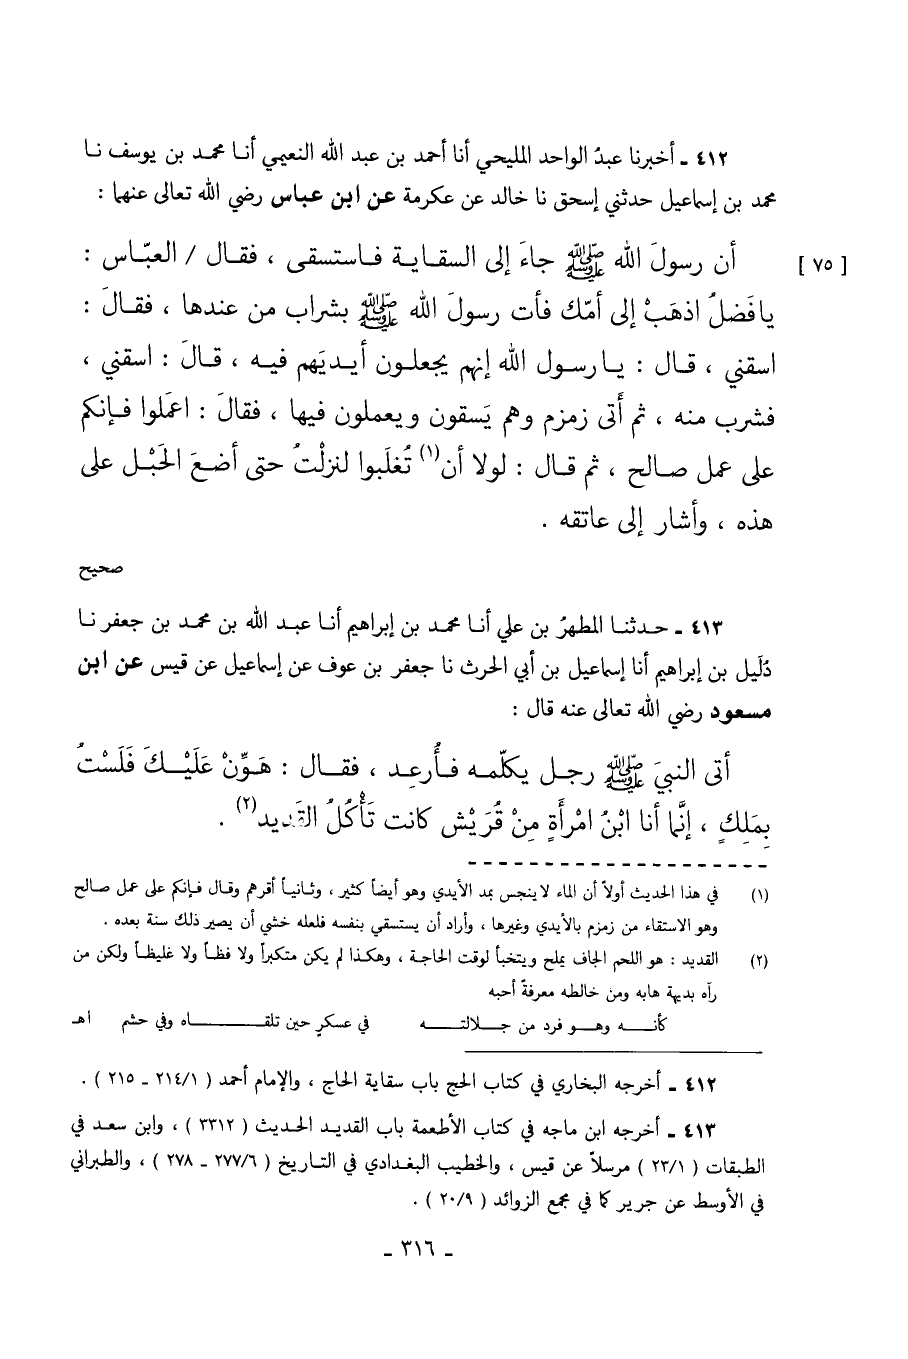 ٤١٢ ـ أخبرنا عبدُ الواحد المليحي أنا أحمد بن عبد الله النعيمي أنـا محمـد بن يوسف نـا
محمد بن إسماعيل حدثني إسحق نا خالد عن عكرمة عن ابن عباس رضي الله تعالى عنهما :
أن رسولَ الله ﷺ جاءَ إلى السقـايـة فـاستسقى ، فقـال / العبّاس : [ ٧٥ ]
يا فَضلُ اذهَبْ إلى أمّك فأت رسولَ الله ﷺ بشراب من عندها ، فقـالَ :
اسقني ، قـال : يـا رسـول الله إنهم يجعلـون أيـديَهم فيـه ، قـالَ : اسقني ،
فشرب منه ، ثم أَتى زمزم وهم يَسقون ويعملون فيها ، فقالَ : اعمَلوا فـإنكم
على عمل صـالح ، ثم قـال : لولا أن(١) تُغلَبوا لنزلْتُ حتى أضعَ الحَبْـل على
هذه ، وأشار إلى عاتقه .
صحيح
٤١٣ ـ حـدثنـا المطهرُ بن علي أنـا محمـد بن إبراهيم أنـا عبـد الله بن محمـد بن جعفر نـا
دُلَيل بن إبراهيم أنا إسماعيل بن أبي الحرث نا جعفر بن عوف عن إسماعيل عن قيس عن ابن
مسعود رضي الله تعالى عنه قال :
أتى النبيَ ﷺ رجـل يكلّمـه فـأُرعِـد ، فقـال : هَـوِّنْ عَلَيْـكَ فَلَسْتُ
بِمَلِكٍ ، إنَّما أنا ابْنُ امْرأَةٍ مِنْ قُرَيْش كانت تَأْكُلُ القَديد(٢) .
(١) في هذا الحديث أولاً أن الماء لا ينجس بمد الأيدي وهو أيضاً كثير ، وثـانيـاً أقرهم وقـال فـإنكم على عمل صـالح
وهو الاستقاء من زمزم بالأيدي وغيرها ، وأراد أن يستسقي بنفسه فلعله خشي أن يصير ذلك سنة بعده .
(٢) القديد : هو اللحم الجاف يملح ويتخبأ لوقت الحاجـة ، وهكـذا لم يكن متكبراً ولا فظـاً ولا غليظـاً ولكن من
رآه بديهة هابه ومن خالطه معرفةً أحبه
كأنـــه وهـــو فرد من جـــلالتـــه في عسكرٍ حين تلقـــاه وفي حشم اهـ
٤١٢ ـ أخرجه البخاري في كتاب الحج باب سقاية الحاج ، والإمام أحمد ( ٢١٤/١ ـ ٢١٥ ) .
٤١٣ ـ أخرجه ابن ماجه في كتاب الأطعمة باب القديـد الحديث ( ٣٣١٢ ) ، وابن سعـد في
الطبقات ( ٢٣/١ ) مرسلاً عن قيس ، والخطيب البغـدادي في التـاريخ ( ٢٧٧/٦ ـ ٢٧٨ ) ، والطبراني
في الأوسط عن جرير كما في مجمع الزوائد ( ٢٠/٩ ) .
ـ ٣١٦ ـ